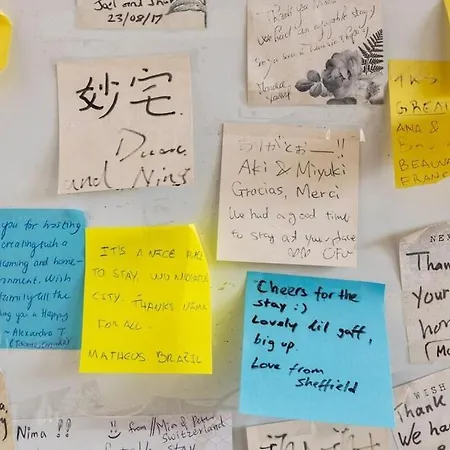 Joel and
23/08/17
Thank you
we had an enjoyable stay
GREAT
ANA &
BEAUVA
FRANC
妙宅
Duane
and Nina
ありがとおー!!
Aki & Miyuki
Gracias, Merci
We had a good time
to stay at your place
you for hosting
creating such a
and home-
With
family all the
you a Happy
~ Alexandra T
IT'S A NICE PLACE
TO STAY.
CITY. THANKS NIMA
FOR ALL.
MATHEUS BRAZIL
Cheers for the
stay :)
Lovely lil gaff,
big up.
Love from
Sheffield
NE
Than
your
hom
Nima !!
from // Mia & Peter
Switzerland
stay
WISH
Thank
We ha